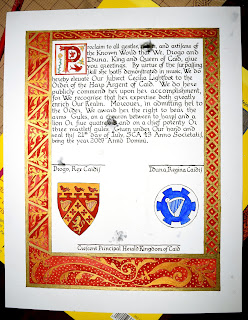 Proclaim to all gentles, nobles, and artisans of
the Known World that We, Diogo and
Eduna, King and Queen of Caid, give
you greetings. By virtue of the surpassing
skill she hath demonstrated in music, We do
hereby elevate Our Subject Cecilia to the
Order of the Harp Argent of Caid. We do here
publicly commend her upon her accomplishment,
for We recognize that her expertise doth greatly
enrich Our Realm. Moreover, in admitting her to
the Order, We award her the right to bear the
arms Gules, on a chevron between to harps and a
lion Or five quatrefoils and on a chief potenty Or
three martlets gules. Given under Our hand and
seal this 21st day of July, SCA 43 Anno Societatis,
being the year 2007 Anno Domini.
Diogo, Rex Caidis
Eduna, Regina Caidis
Crescent Principal Herald Kingdom of Caid